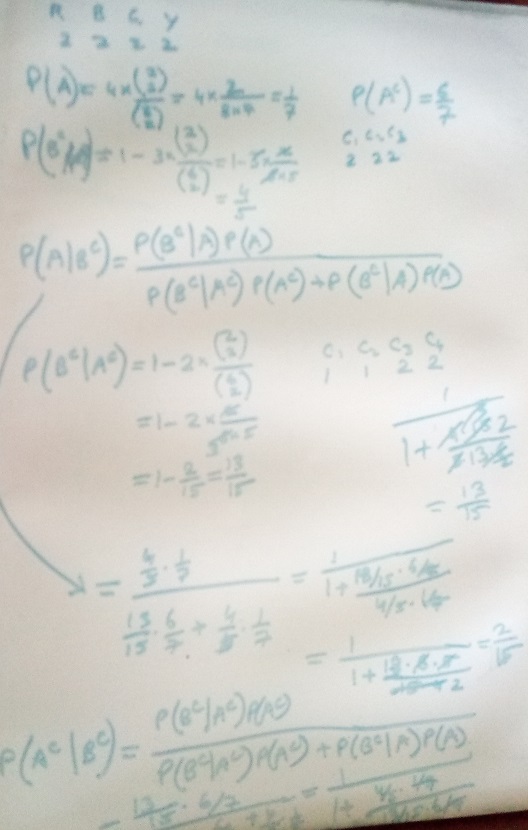 R B G Y
2 2 2 2
P(A) = 4 × (2 2)/(8 2) = 4 × 2/(8×7) = 1/7 P(A^c) = 6/7
P(B^c|A) = 1 - 3 × (2 2)/(6 2) = 1 - 3 × 2/(6×5) C₁ C₂ C₃
= 4/5 2 2 2
P(A|B^c) = P(B^c|A) P(A) / (P(B^c|A^c) P(A^c) + P(B^c|A) P(A))
P(B^c|A^c) = 1 - 2 × (2 2)/(6 2) C₁ C₂ C₃ C₄
= 1 - 2 × 2/(6×5) 1 1 2 2
= 1 - 2/15 = 13/15
= 13/15
= (4/5 · 1/7) / (13/15 · 6/7 + 4/5 · 1/7) = 1 / (1 + (13/15 · 6/7)/(4/5 · 1/7))
= 2/15
P(A^c|B^c) = P(B^c|A^c) P(A^c) / (P(B^c|A^c) P(A^c) + P(B^c|A) P(A))